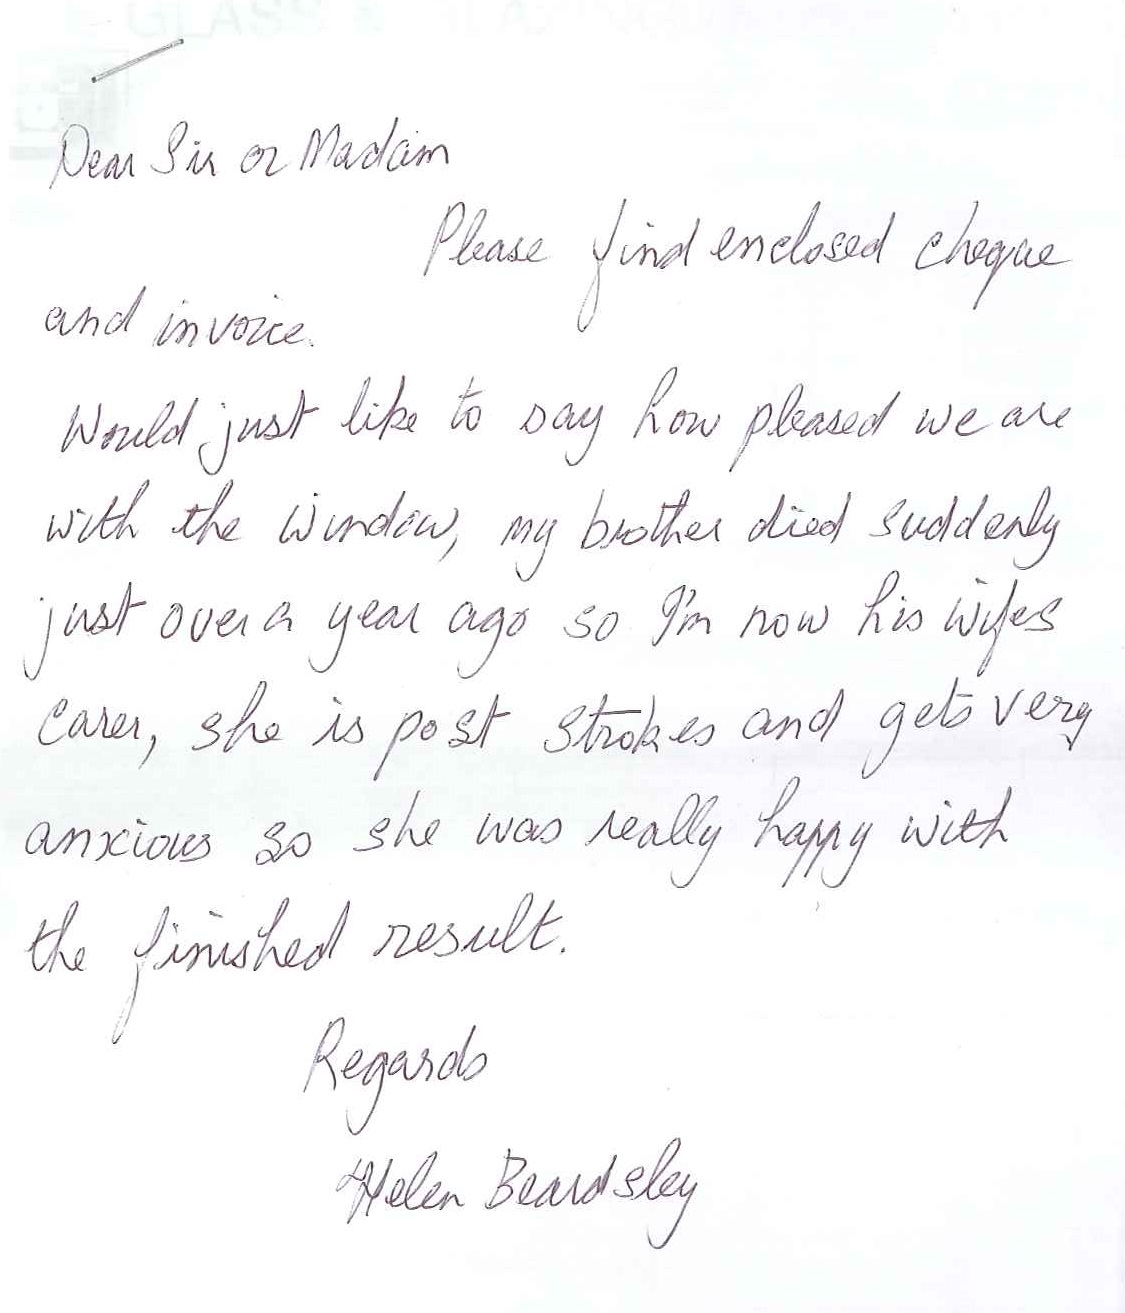 Dear Sir or Madam
Please find enclosed cheque
and invoice.
Would just like to say how pleased we are
with the window, my brother died suddenly
just over a year ago so I'm now his wifes
carer, she is post strokes and gets very
anxious so she was really happy with
the finished result.
Regards
Helen Beardsley